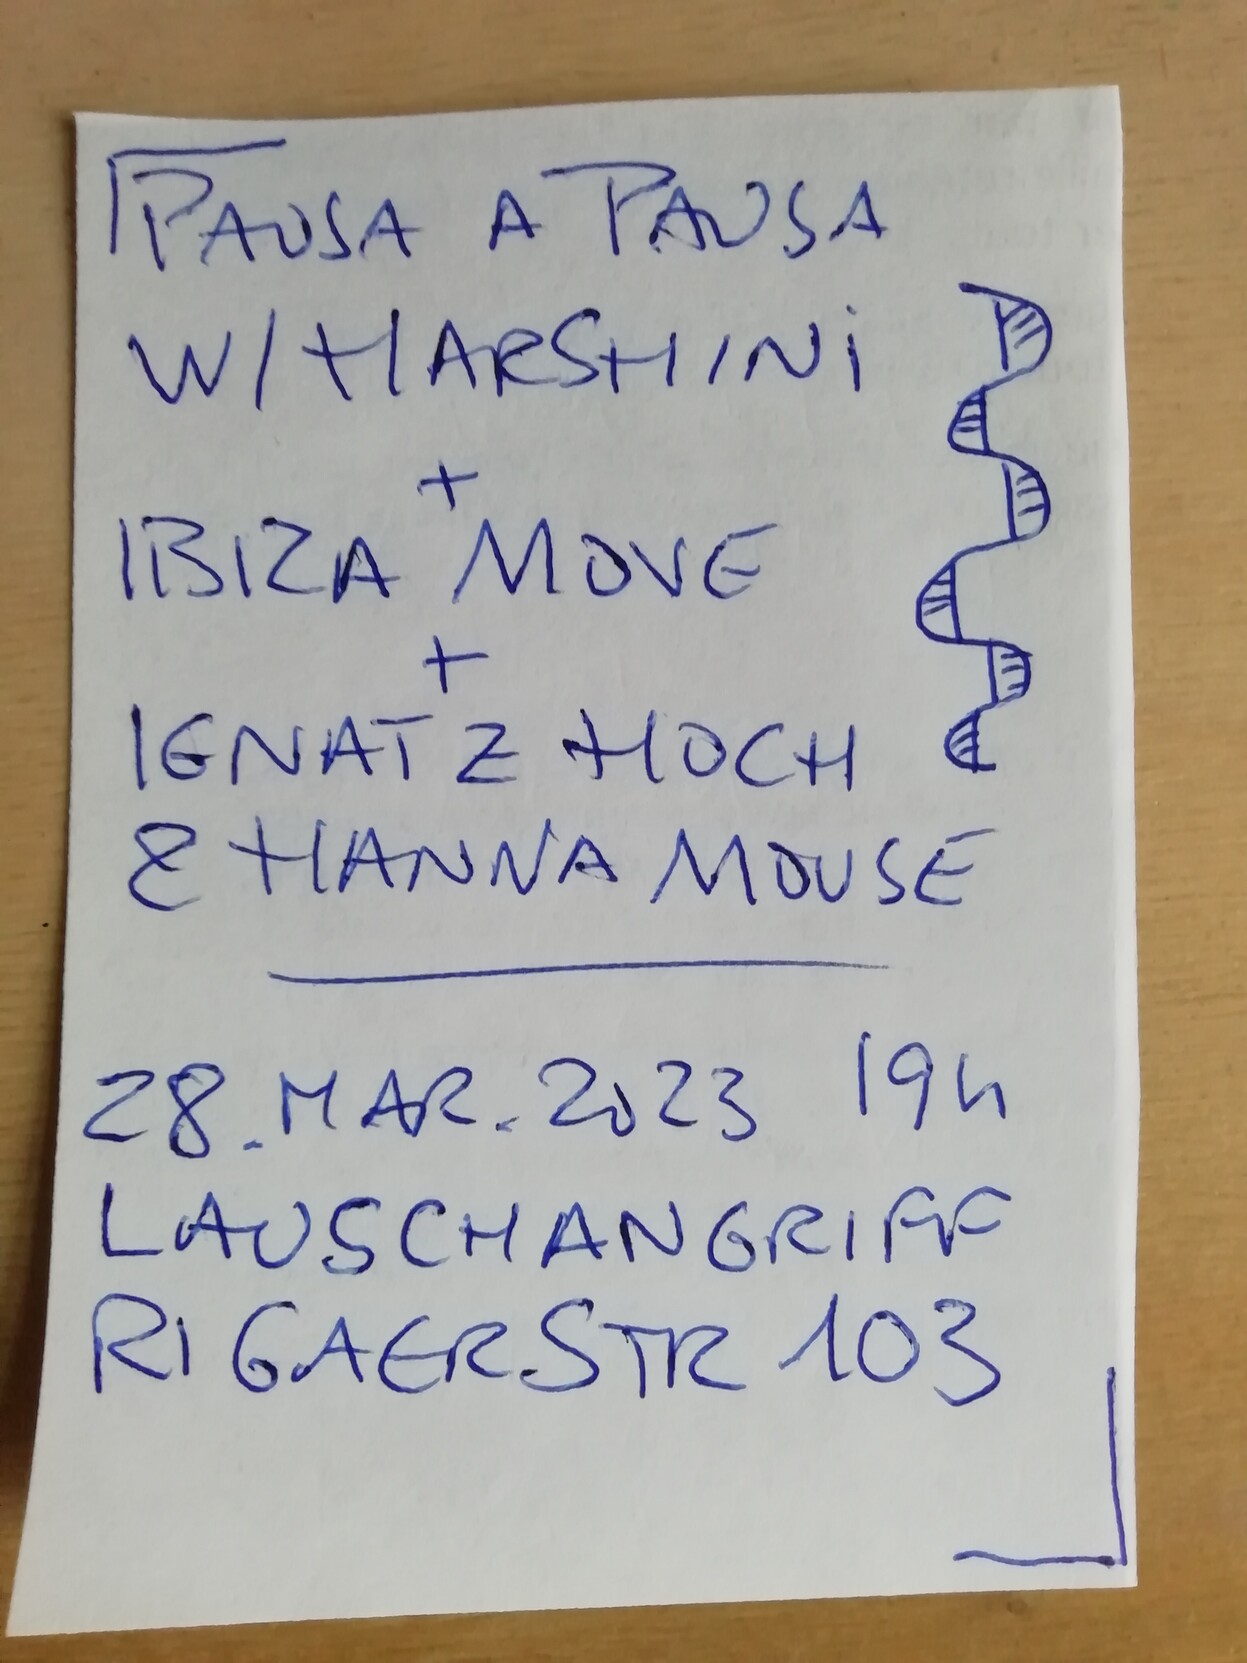 PAUSA A PAUSA
W/ HARSHINi
+
IBIZA MOVE
+
IGNATZ HOCH
& HANNA MOUSE
28. MAR. 2023 19h
LAUSCHANGRIFF
RIGAER STR 103